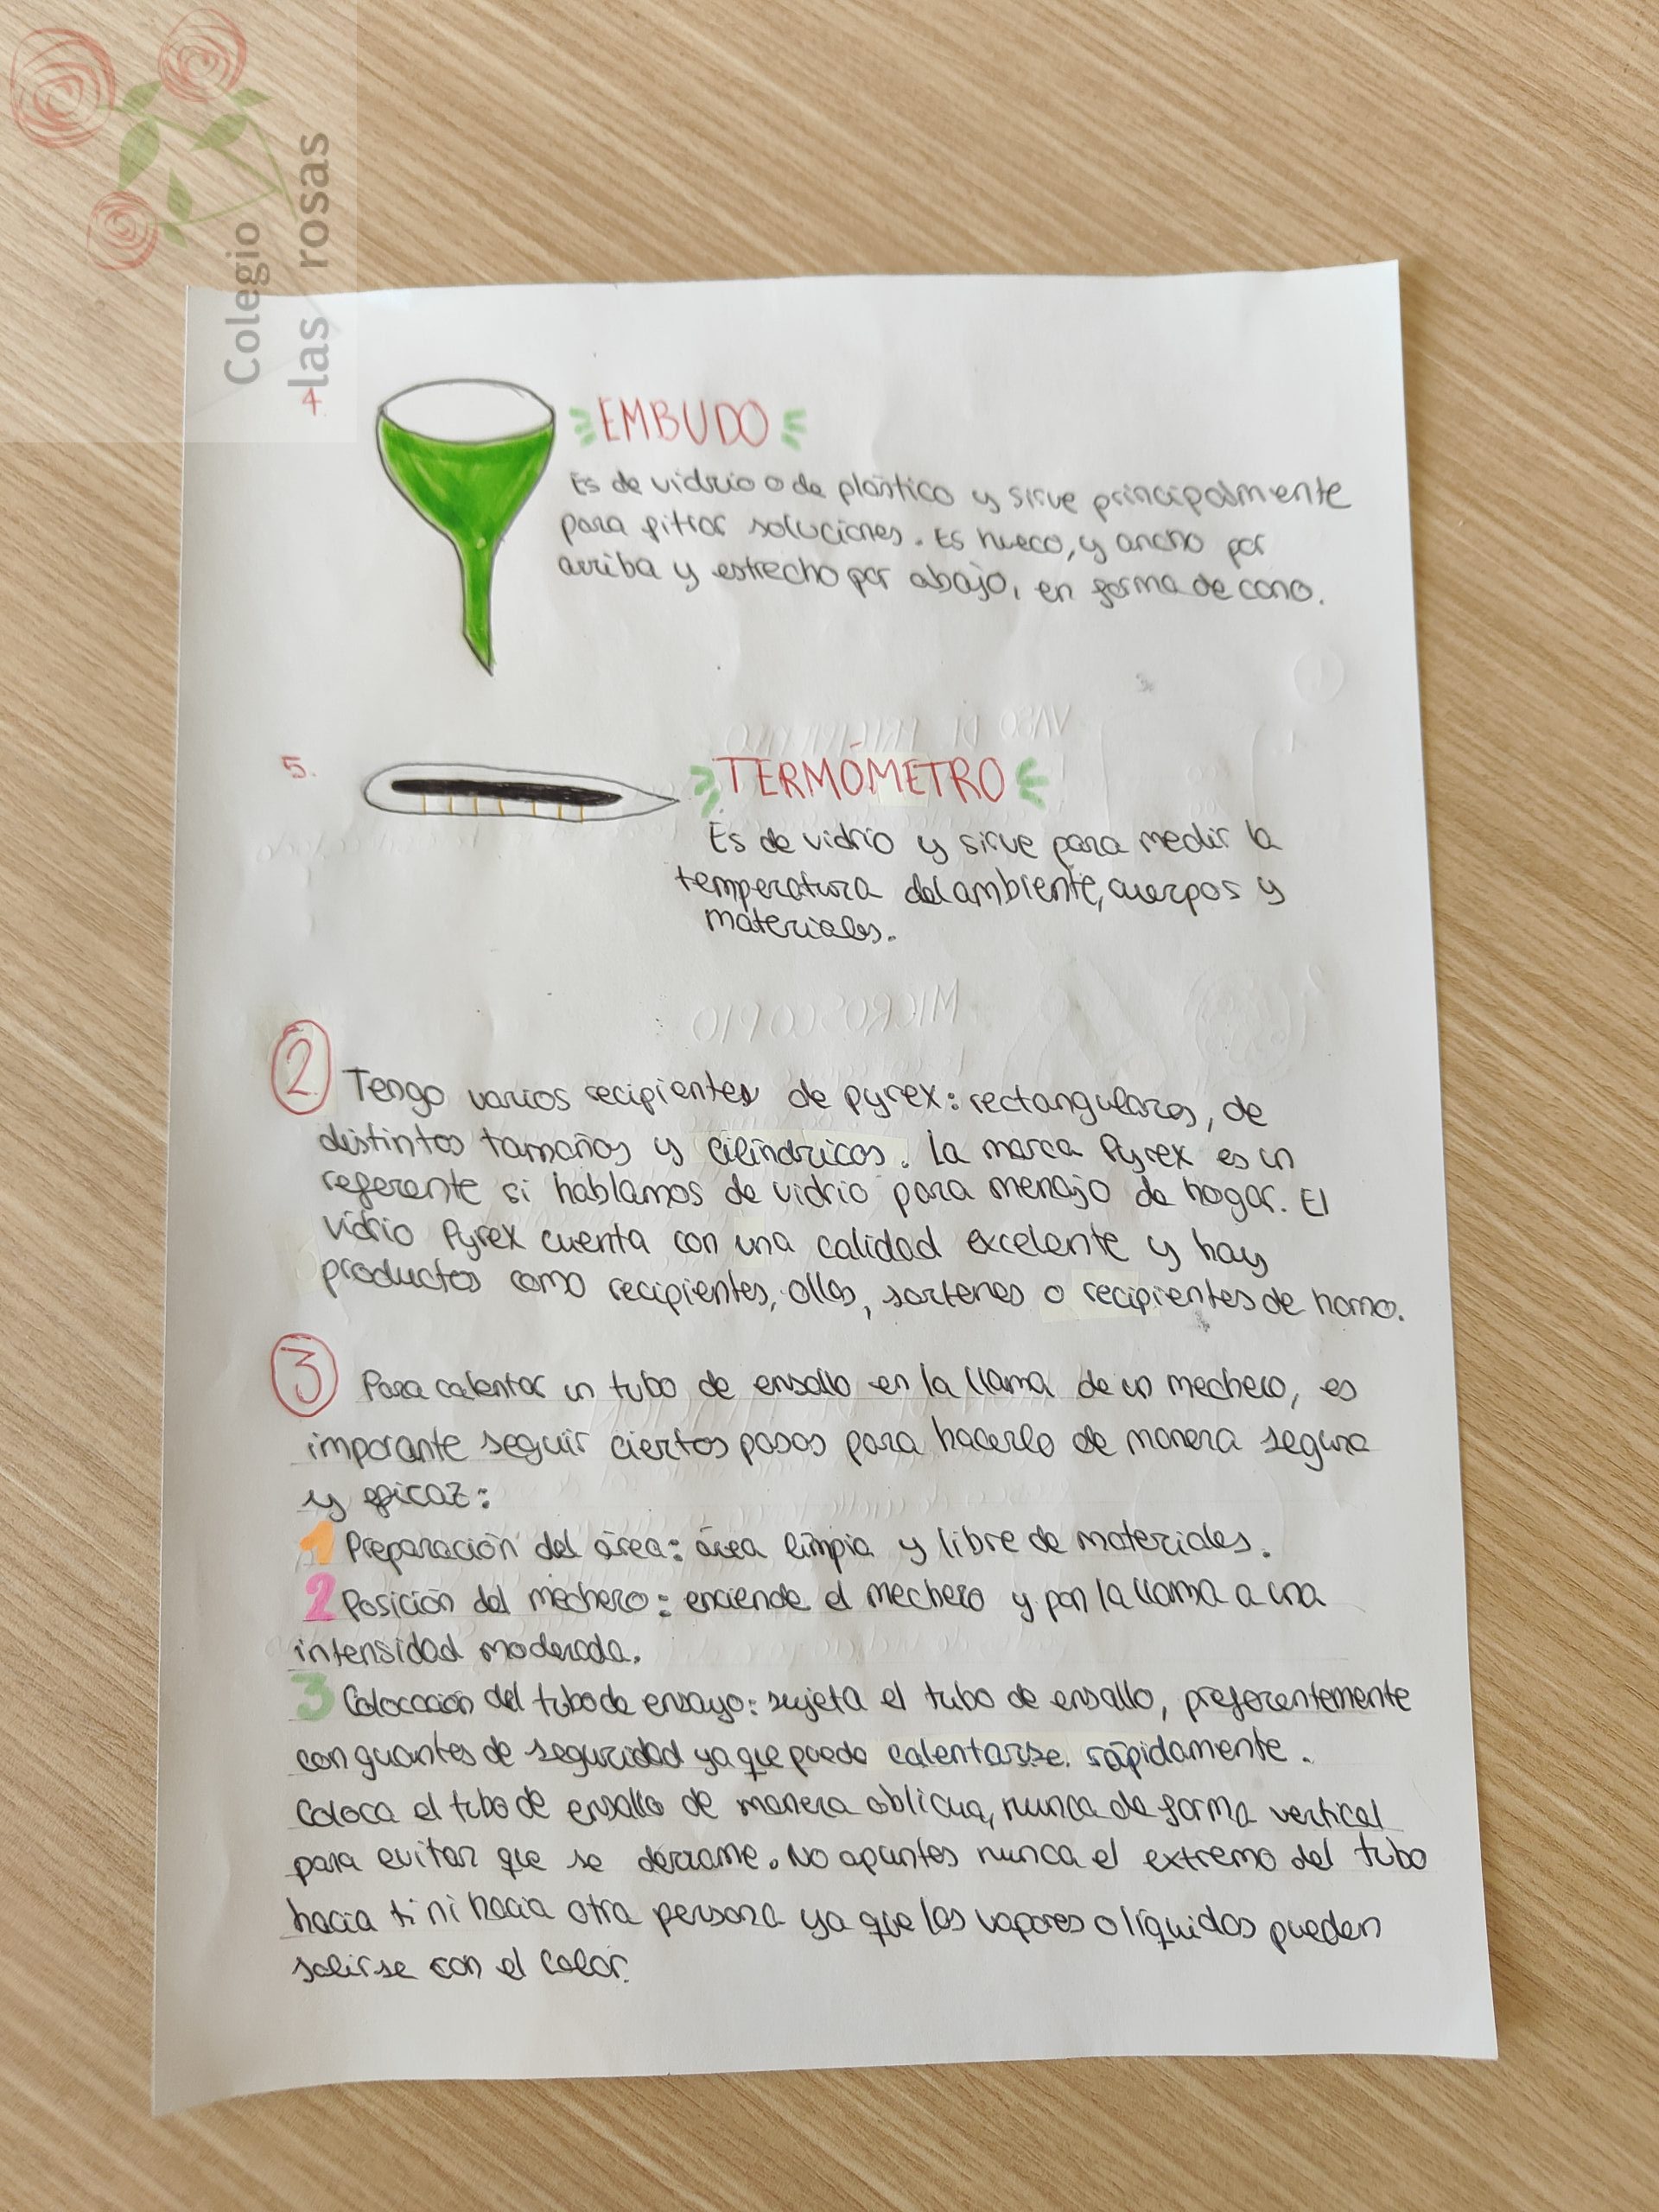 Colegio
las rosas
4.
EMBUDO
Es de vidrio o de plástico y sirve principalmente
para filtrar soluciones. Es hueco, y ancho por
arriba y estrecho por abajo, en forma de cono.
5.
TERMÓMETRO
Es de vidrio y sirve para medir la
temperatura del ambiente, cuerpos y
materiales.
MICROSCOPIO
2 Tengo varios recipientes de pyrex: rectangulares, de
distintos tamaños y cilíndricos. La marca Pyrex es un
referente si hablamos de vidrio para menajo de hogar. El
vidrio Pyrex cuenta con una calidad excelente y hay
productos como recipientes, ollas, sartenes o recipientes de horno.
3 Para calentar un tubo de ensallo en la llama de un mechero, es
imporante seguir ciertos pasos para hacerlo de manera segura
y eficaz:
1 Preparación del área: área limpia y libre de materiales.
2 Posición del mechero: enciende el mechero y pon la llama a una
intensidad moderada.
3 Colocación del tubo de ensayo: sujeta el tubo de ensallo, preferentemente
con guantes de seguridad ya que puede calentarse rápidamente.
Coloca el tubo de ensallo de manera oblicua, nunca de forma vertical
para evitar que se derrame. No apuntes nunca el extremo del tubo
hacia ti ni hacia otra persona ya que los vapores o líquidos pueden
salirse con el calor.